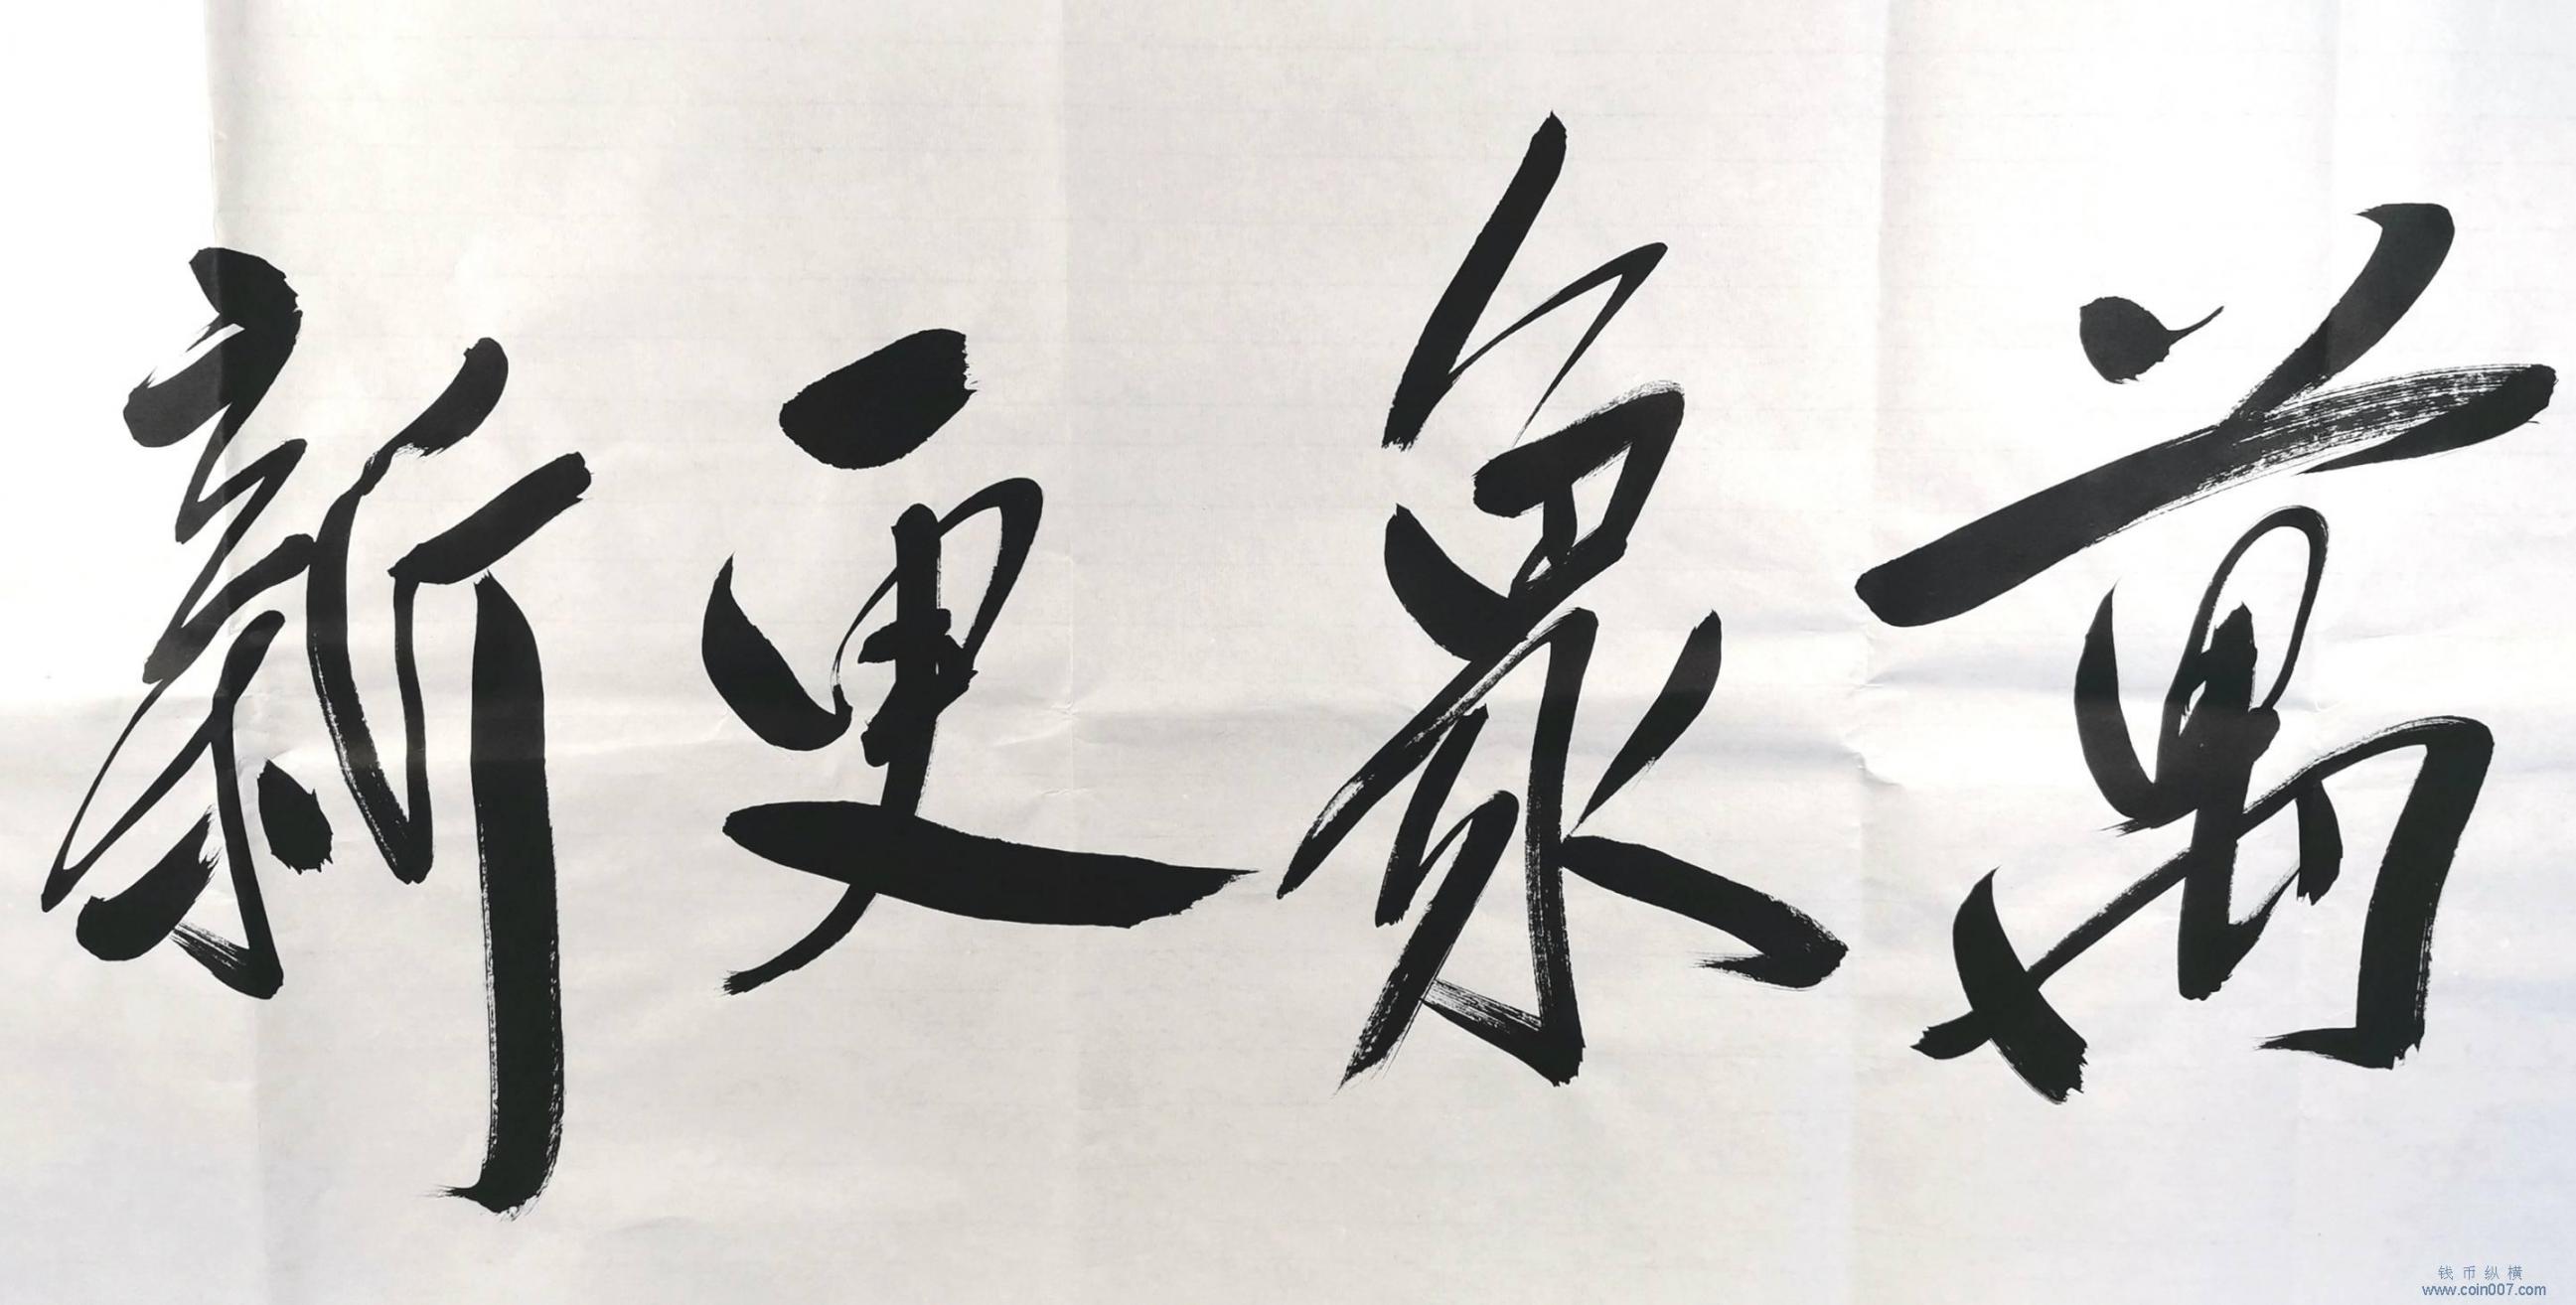 萬象更新
钱币纵横
www.coin007.com